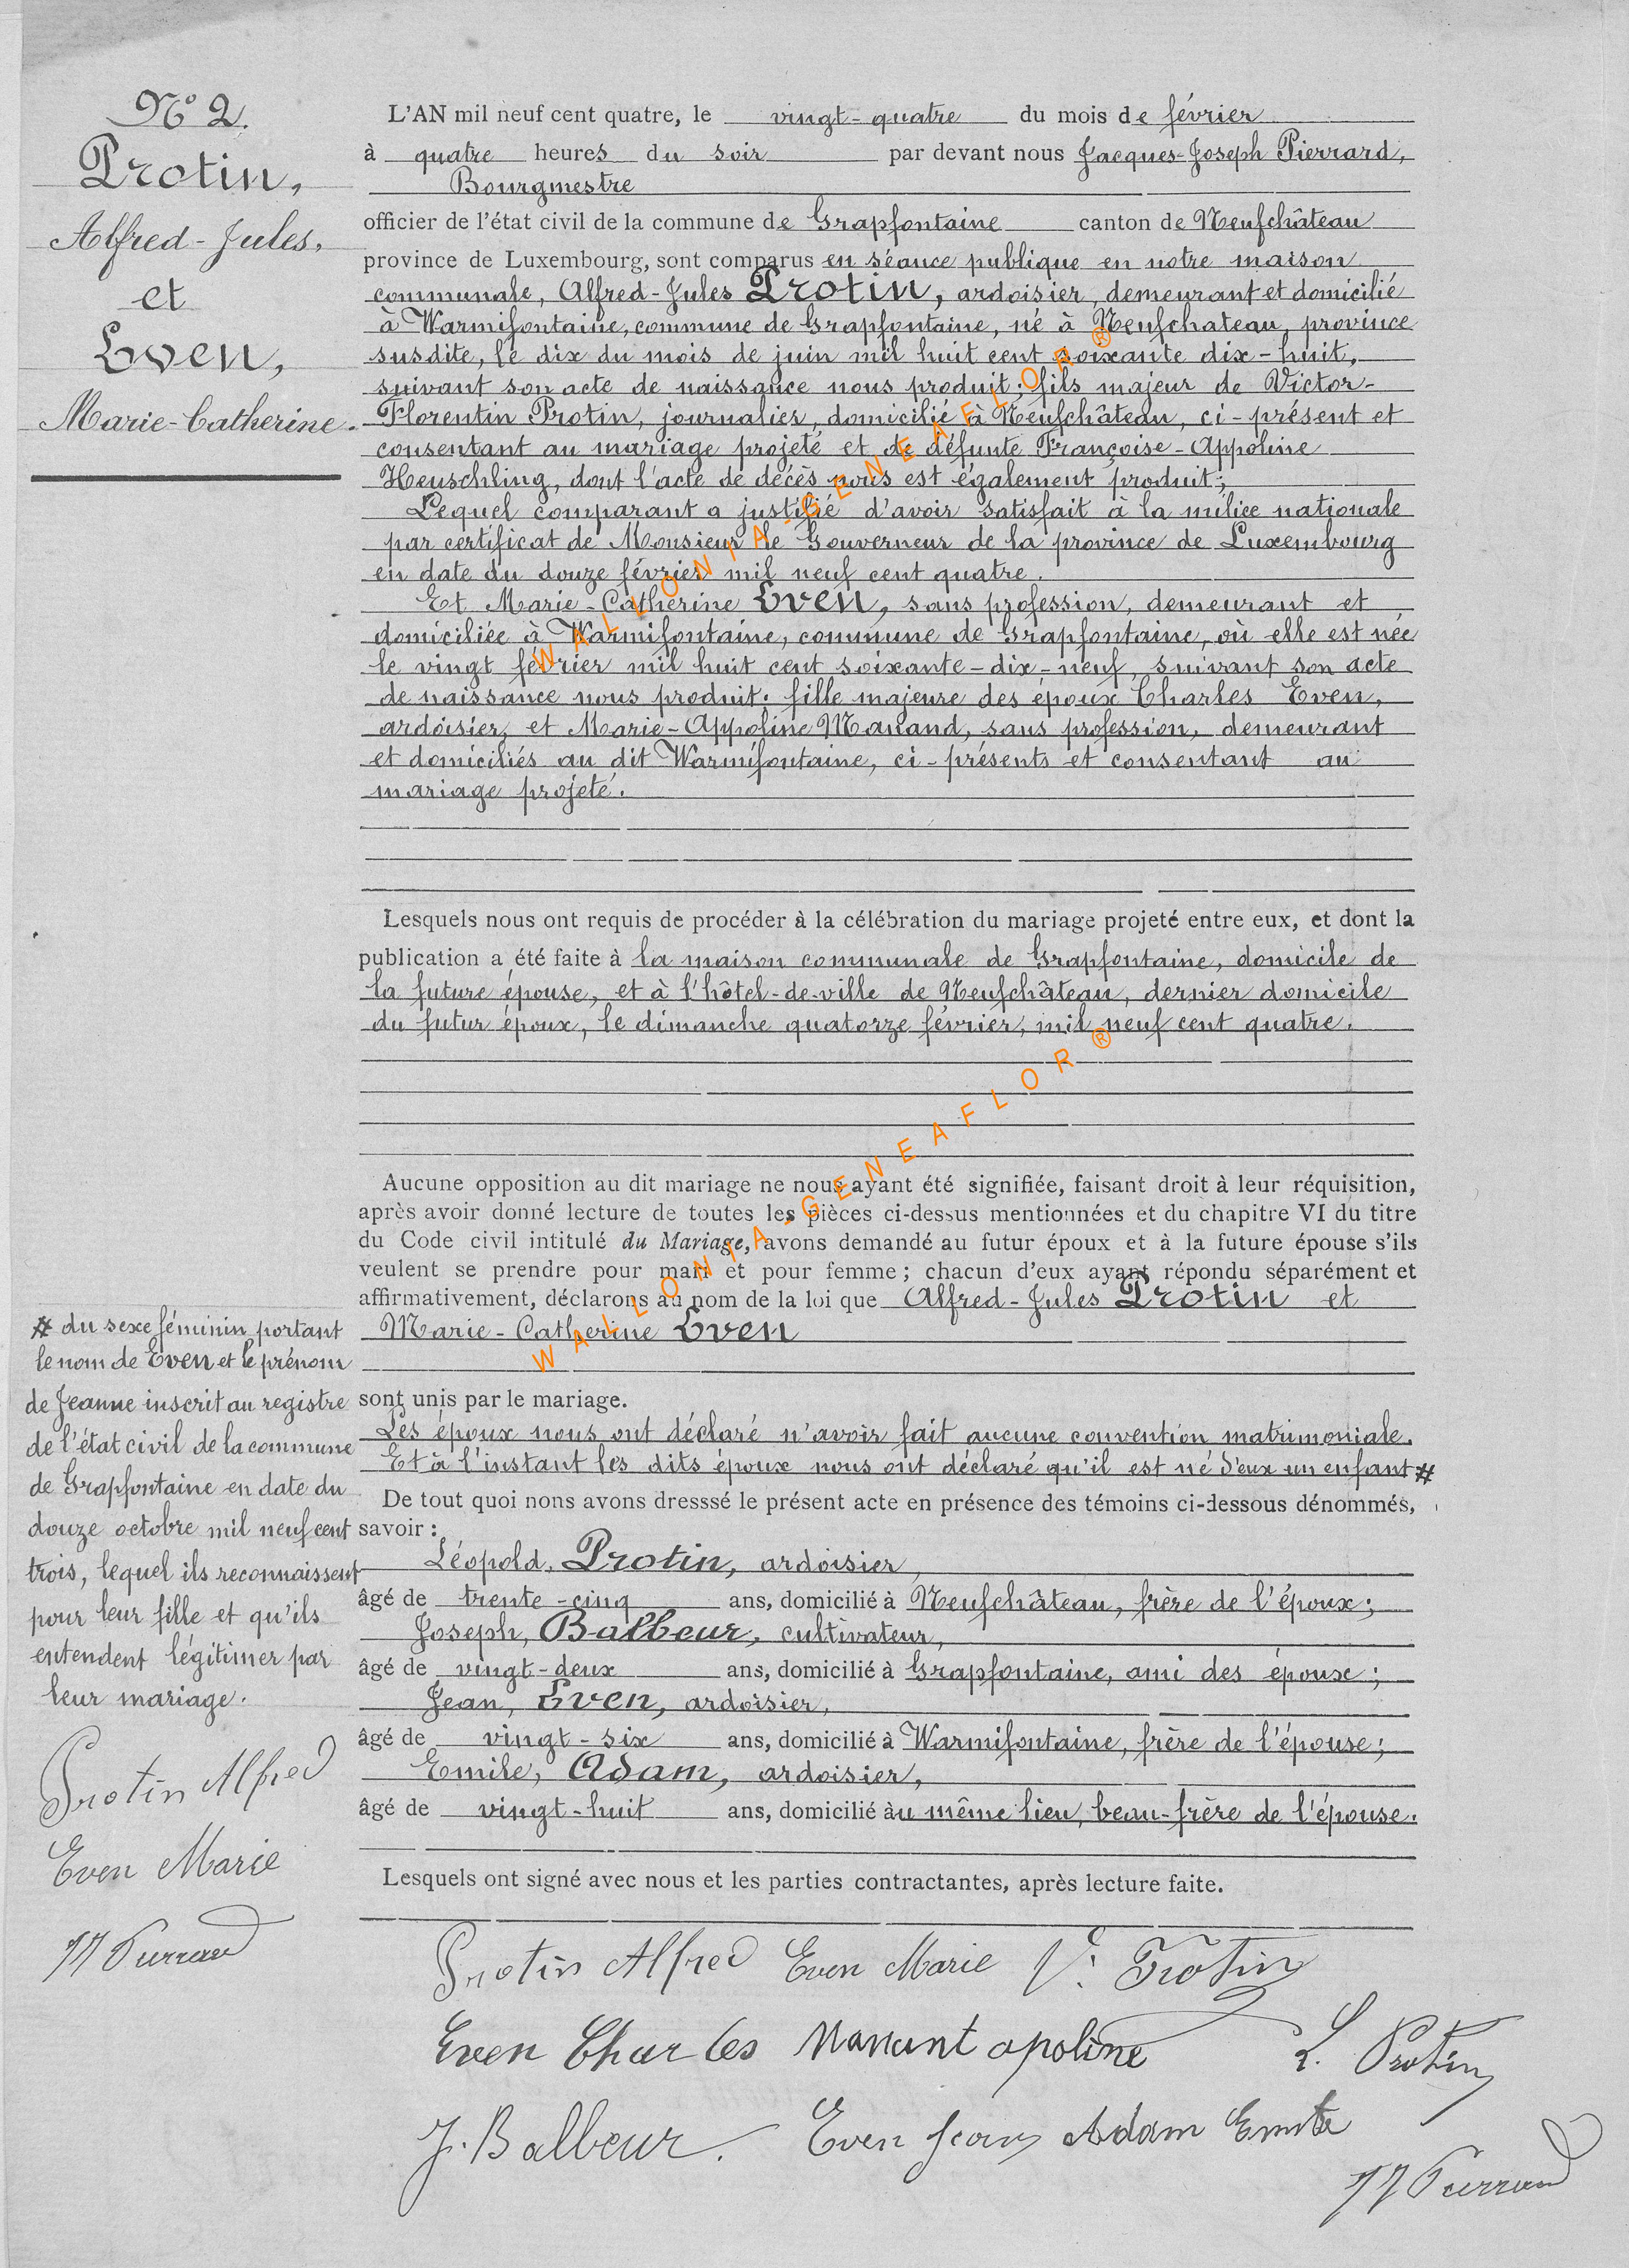 Nº 2.
Protin,
Alfred-Jules,
et
Even,
Marie-Catherine.
L'AN mil neuf cent quatre, le vingt-quatre du mois de février
à quatre heures du soir par devant nous Jacques-Joseph Pierrard,
Bourgmestre
officier de l'état civil de la commune de Grapfontaine canton de Neufchâteau
province de Luxembourg, sont comparus en séance publique en notre maison
communale, Alfred-Jules Protin, ardoisier, demeurant et domicilié
à Warmifontaine, commune de Grapfontaine, né à Neufchateau, province
susdite, le dix du mois de juin mil huit cent soixante dix-huit,
suivant son acte de naissance nous produit; fils majeur de Victor-
Florentin Protin, journalier, domicilié à Neufchâteau, ci-présent et
consentant au mariage projeté et de défunte Françoise-Appoline
Heuschling, dont l'acte de décès nous est également produit;
Lequel comparant a justifié d'avoir satisfait à la milice nationale
par certificat de Monsieur le Gouverneur de la province de Luxembourg
en date du douze février mil neuf cent quatre.
Et Marie-Catherine Even, sans profession, demeurant et
domiciliée à Warmifontaine, commune de Grapfontaine, où elle est née
le vingt février mil huit cent soixante-dix-neuf, suivant son acte
de naissance nous produit; fille majeure des époux Charles Even,
ardoisier, et Marie-Appoline Manand, sans profession, demeurant
et domiciliés au dit Warmifontaine, ci-présents et consentant au
mariage projeté.
WALLONIA-GENEAFLOR®
Lesquels nous ont requis de procéder à la célébration du mariage projeté entre eux, et dont la
publication a été faite à la maison communale de Grapfontaine, domicile de
la future épouse, et à l'hôtel-de-ville de Neufchâteau, dernier domicile
du futur époux, le dimanche quatorze février, mil neuf cent quatre.
Aucune opposition au dit mariage ne nous ayant été signifiée, faisant droit à leur réquisition,
après avoir donné lecture de toutes les pièces ci-dessus mentionnées et du chapitre VI du titre
du Code civil intitulé du Mariage, avons demandé au futur époux et à la future épouse s'ils
veulent se prendre pour mari et pour femme; chacun d'eux ayant répondu séparément et
affirmativement, déclarons au nom de la loi que Alfred-Jules Protin et
Marie-Catherine Even
WALLONIA-GENEAFLOR®
sont unis par le mariage.
Les époux nous ont déclaré n'avoir fait aucune convention matrimoniale.
Et à l'instant les dits époux nous ont déclaré qu'il est né d'eux un enfant #
# du sexe féminin portant
le nom de Even et le prénom
de Jeanne inscrit au registre
de l'état civil de la commune
de Grapfontaine en date du
douze octobre mil neuf cent
trois, lequel ils reconnaissent
pour leur fille et qu'ils
entendent légitimer par
leur mariage.
Protin Alfred
Even Marie
JJ Pierrard
De tout quoi nons avons dresssé le présent acte en présence des témoins ci-dessous dénommés,
savoir :
Léopold, Protin, ardoisier,
âgé de trente-cinq ans, domicilié à Neufchâteau, frère de l'époux;
Joseph, Balbeur, cultivateur,
âgé de vingt-deux ans, domicilié à Grapfontaine, ami des époux;
Jean, Even, ardoisier,
âgé de vingt-six ans, domicilié à Warmifontaine, frère de l'épouse;
Emile, Adam, ardoisier,
âgé de vingt-huit ans, domicilié àu même lieu, beau-frère de l'épouse.
Lesquels ont signé avec nous et les parties contractantes, après lecture faite.
Protin Alfred Even Marie V. Protin
Even Charles Manant apoline L. Protin
J. Balbeur. Even Jean Adam Emile
JJ Pierrard